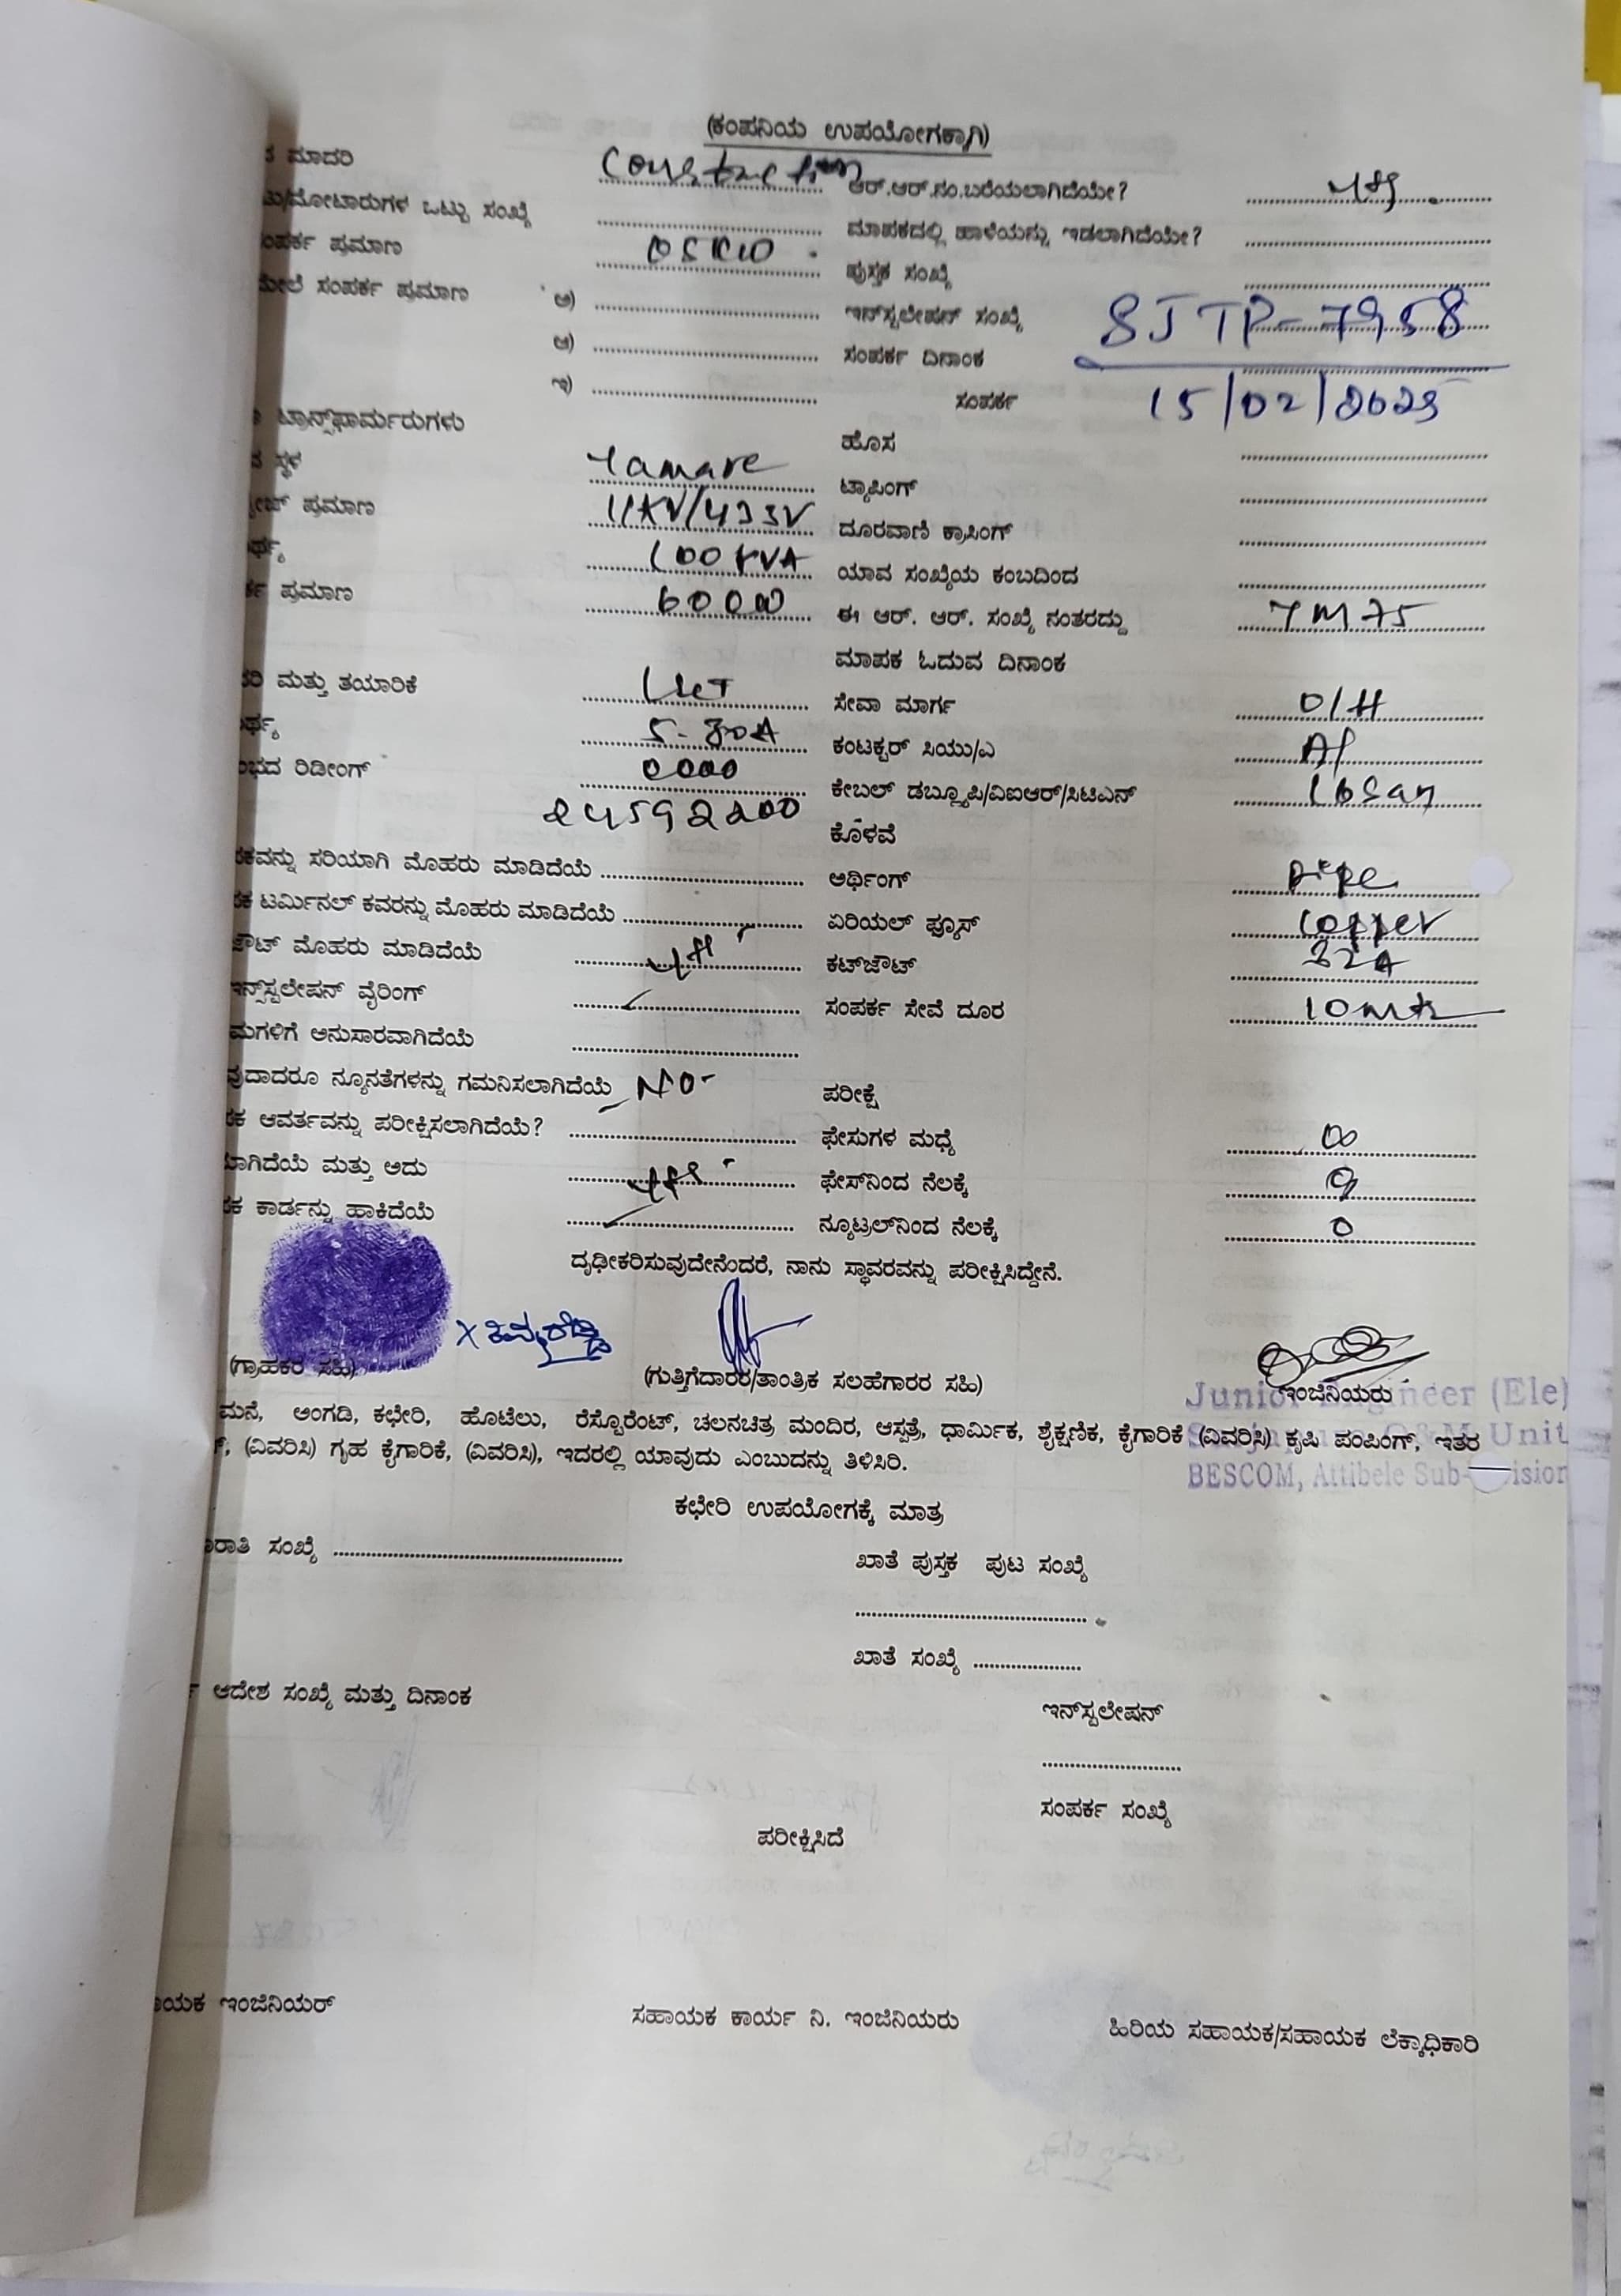 (ಕಂಪನಿಯ ಉಪಯೋಗಕ್ಕಾಗಿ)
ಮಾದರಿ Construction ಆರ್.ಆರ್.ನಂ.ಬರೆಯಲಾಗಿದೆಯೇ?
ಮೋಟಾರುಗಳ ಒಟ್ಟು ಸಂಖ್ಯೆ ಮಾಪಕದಲ್ಲಿ ಹಾಳೆಯನ್ನು ಇಡಲಾಗಿದೆಯೇ?
ಪ್ರಮಾಣ 05 KW ಪುಸ್ತಕ ಸಂಖ್ಯೆ
ಮೇಲೆ ಸಂಪರ್ಕ ಪ್ರಮಾಣ ಅ) ಇನ್‌ಸ್ಟಲೇಷನ್ ಸಂಖ್ಯೆ SJTP-7958
ಆ) ಸಂಪರ್ಕ ದಿನಾಂಕ
ಇ) ಸಂಪರ್ಕ 15/02/2023
ಟ್ರಾನ್ಸ್‌ಫಾರ್ಮರುಗಳು ಹೊಸ
ಸ್ಥಳ Yamare ಟ್ಯಾಪಿಂಗ್
ಪ್ರಮಾಣ 11KV/433V ದೂರವಾಣಿ ಕ್ರಾಸಿಂಗ್
100 KVA ಯಾವ ಸಂಖ್ಯೆಯ ಕಂಬದಿಂದ
ಪ್ರಮಾಣ ಈ ಆರ್. ಆರ್. ಸಂಖ್ಯೆ ನಂತರದ್ದು YM75
ಮಾಪಕ ಓದುವ ದಿನಾಂಕ
ಮತ್ತು ತಯಾರಿಕೆ ಸೇವಾ ಮಾರ್ಗ O/H
5-30A ಕಂಟಕ್ಟರ್ ಸಿಯು/ಎ Al
ರಿಡೀಂಗ್ 0000 ಕೇಬಲ್ ಡಬ್ಲ್ಯೂಪಿ/ವಿಐಆರ್/ಸಿಟಿಎನ್
24592200 ಕೊಳವೆ
ಸರಿಯಾಗಿ ಮೊಹರು ಮಾಡಿದೆಯೆ ಅರ್ಥಿಂಗ್ Pipe
ಟರ್ಮಿನಲ್ ಕವರನ್ನು ಮೊಹರು ಮಾಡಿದೆಯೆ ಏರಿಯಲ್ ಫ್ಯೂಸ್ Copper
ಮೊಹರು ಮಾಡಿದೆಯೆ ಕಟ್‌ಜೌಟ್ 32A
ಇನ್ಸ್‌ಸ್ಟಲೇಷನ್ ವೈರಿಂಗ್ ಸಂಪರ್ಕ ಸೇವೆ ದೂರ
ಅನುಸಾರವಾಗಿದೆಯೆ
ನ್ಯೂನತೆಗಳನ್ನು ಗಮನಿಸಲಾಗಿದೆಯೆ NO ಪರೀಕ್ಷೆ
ಆವರ್ತವನ್ನು ಪರೀಕ್ಷಿಸಲಾಗಿದೆಯೆ? ಫೇಸುಗಳ ಮಧ್ಯೆ
ಮತ್ತು ಅದು ಫೇಸ್‌ನಿಂದ ನೆಲಕ್ಕೆ
ಕಾರ್ಡನ್ನು ಹಾಕಿದೆಯೆ ನ್ಯೂಟ್ರಲ್‌ನಿಂದ ನೆಲಕ್ಕೆ 0
ದೃಢೀಕರಿಸುವುದೇನೆಂದರೆ, ನಾನು ಸ್ಥಾವರವನ್ನು ಪರೀಕ್ಷಿಸಿದ್ದೇನೆ.
(ಗ್ರಾಹಕರ ಸಹಿ) (ಗುತ್ತಿಗೆದಾರರ/ತಾಂತ್ರಿಕ ಸಲಹೆಗಾರರ ಸಹಿ) ಇಂಜಿನಿಯರು
Junior Engineer (Ele)
ಮನೆ, ಅಂಗಡಿ, ಕಛೇರಿ, ಹೊಟೆಲು, ರೆಸ್ಟೊರೆಂಟ್, ಚಲನಚಿತ್ರ ಮಂದಿರ, ಆಸ್ಪತ್ರೆ, ಧಾರ್ಮಿಕ, ಶೈಕ್ಷಣಿಕ, ಕೈಗಾರಿಕೆ (ವಿವರಿಸಿ) ಕೃಷಿ ಪಂಪಿಂಗ್, ಇತರ
O&M Unit
(ವಿವರಿಸಿ) ಗೃಹ ಕೈಗಾರಿಕೆ, (ವಿವರಿಸಿ), ಇದರಲ್ಲಿ ಯಾವುದು ಎಂಬುದನ್ನು ತಿಳಿಸಿರಿ.
BESCOM, Attibele Sub-
ಕಛೇರಿ ಉಪಯೋಗಕ್ಕೆ ಮಾತ್ರ
ಸಂಖ್ಯೆ ಖಾತೆ ಪುಸ್ತಕ ಪುಟ ಸಂಖ್ಯೆ
ಖಾತೆ ಸಂಖ್ಯೆ
ಆದೇಶ ಸಂಖ್ಯೆ ಮತ್ತು ದಿನಾಂಕ
ಇನ್‌ಸ್ಟಲೇಷನ್
ಸಂಪರ್ಕ ಸಂಖ್ಯೆ
ಪರೀಕ್ಷಿಸಿದೆ
ಇಂಜಿನಿಯರ್ ಸಹಾಯಕ ಕಾರ್ಯ ನಿ. ಇಂಜಿನಿಯರು ಹಿರಿಯ ಸಹಾಯಕ/ಸಹಾಯಕ ಲೆಕ್ಕಾಧಿಕಾರಿ